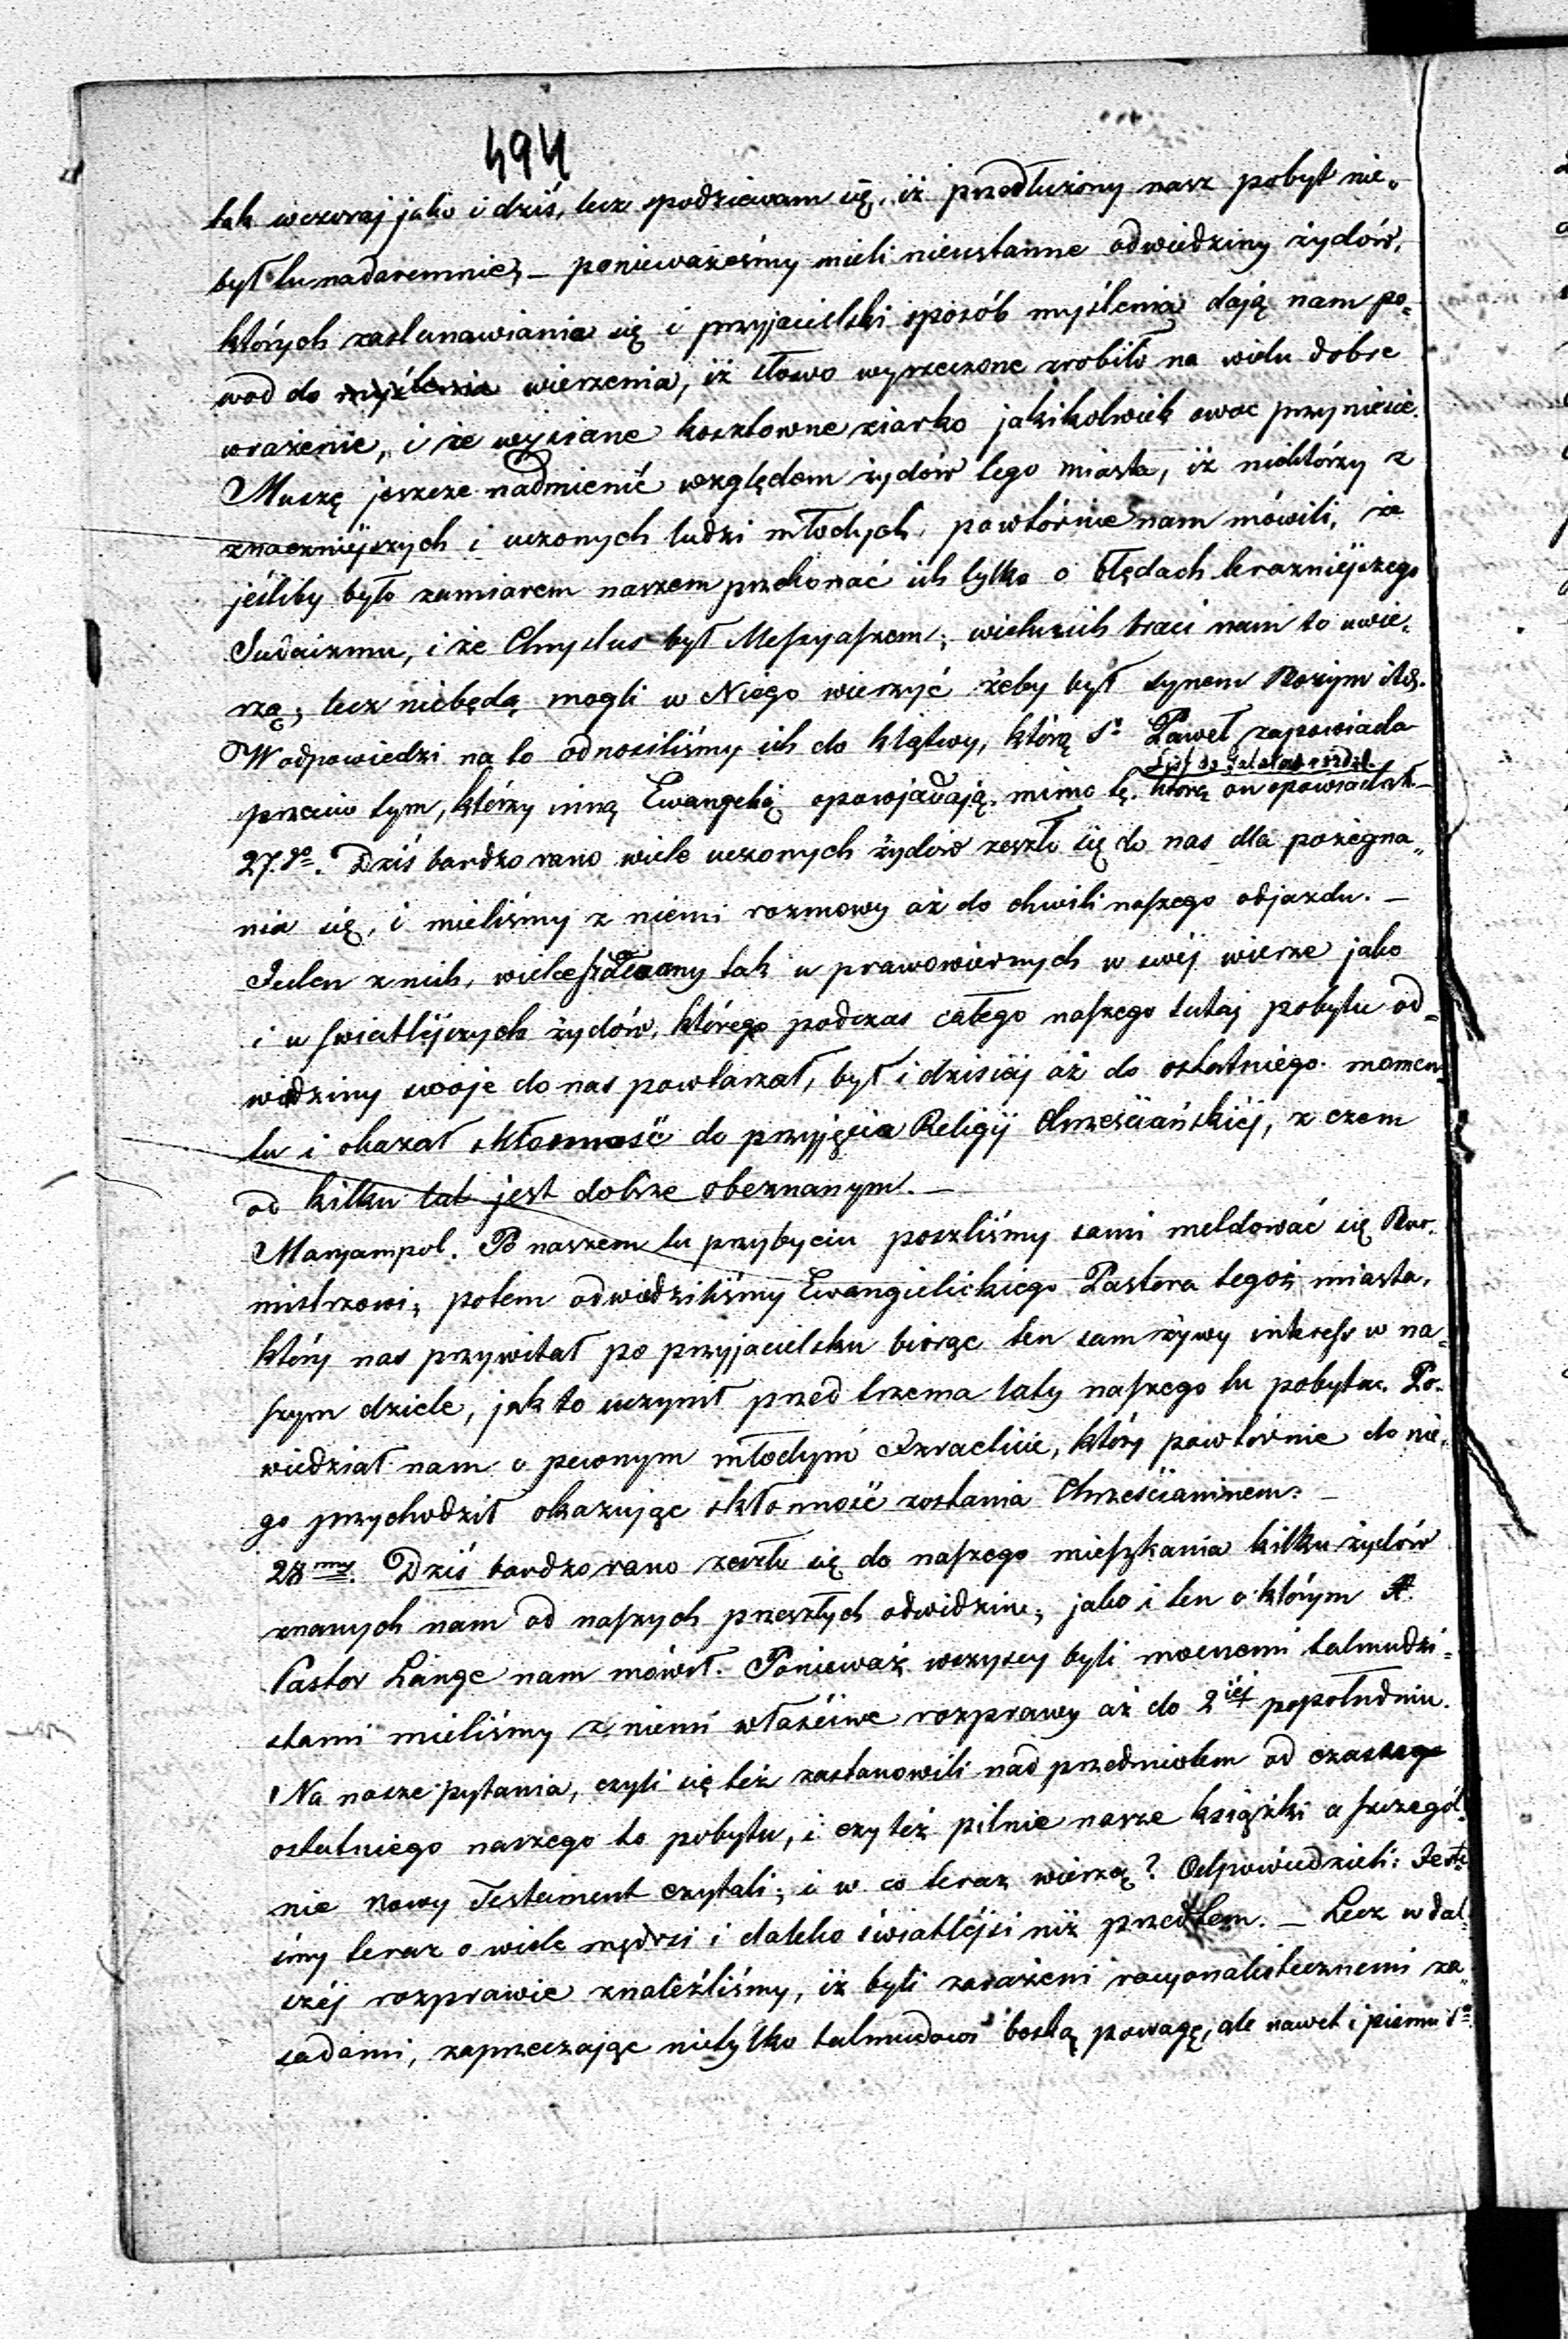 494
tak wczoraj jako i dziś, lecz spodziewam się, iż przedłużony nasz pobyt nie„
był tu nadaremnie; — ponieważeśmy mieli nieustanne odwiedziny żydów,
których zastanawiania się i przyjacielski sposób myślenia dają nam po„
wod do myślenia wierzenia, iż słowo wyrzeczone zrobiło na wielu dobre
wrażenie, i że wysiane kosztowne ziarko jakikolwiek owoc przyniesie.
Muszę jeszcze nadmienić względem żydów tego miasta, iż niektórzy z
znaczniejszych i uczonych ludzi młodych, powtórnie nam mówili, że
jeśliby było zamiarem naszem przekonać ich tylko o błędach terazniejszego
Judaizmu, i że Chrystus był Meſzyaſzem; wielu z ich braci nam to uwie„
rzą; lecz niebędą mogli w Niego wierzyć żeby był synem Bożym itd.
W odpowiedzi na to odnosiliśmy ich do klątwy, którą Sn Paweł zapowiada
List do Galatow rozdz.
przeciw tym, którzy inną Ewangelią opowiadają, mimo tę, którą on opowiadał.—
27.go. Dziś bardzo rano wiele uczonych żydów zeszło się do nas dla pożegna„
nia się, i mieliśmy z niemi rozmowy aż do chwili naſzego odjazdu. —
Jeden z nich, wiele ſzacowany tak u prawowiernych w swéj wierze jako
i u ſwiatlejszych żydów, którego podczas całego naſzego tutaj pobytu od„
widziny swoje do nas powtarzał, był i dzisiaj aż do ostatniego momen„
tu i okazał skłonność do przyjęcia Religij Chrześciańskiéj, z czem
od kilku lat jest dobrze obeznanym. —
Maryampol. Po naszem tu przybyciu poszliśmy sami meldować się Bur„
mistrzowi; potem odwiedziliśmy Ewangielickiego Pastora tegoż miasta,
który nas przywitał po przyjacielsku biorąc ten sam żywy intereſs w na„
ſzym dziele, jak to uczynił przed trzema laty naſzego tu pobytu. Po„
wiedział nam o pewnym młodym Izraelicie, który powtórnie do nie„
go przychodził okazując skłonność zostania Chrześcianinem. —
28my. Dziś bardzo rano zeszło się do naſzego mieſzkania kilku żydów
znanych nam od naſzych przeszłych odwidzin; jako i ten o którym
Pastor Lange nam mówił. Ponieważ wszyscy byli mocnemi talmudzi„
stami mieliśmy z niemi właściwe rozprawy aż do 2iéj popołudniu.
Na nasze pytania, czyli się też zastanowili nad przedmiotem od czasu
ostatniego naszego to pobytu, i czy też pilnie nasze książki a ſzczegól„
nie Nowy Testament czytali; i w co teraz wierzą? Odpowiedzieli: Jeste„
śmy teraz o wiele mędrsi i daleko światlejsi niż przedtem. — Lecz w dal„
széj rozprawie znaleźliśmy, iż byli zarażeni racyonalistycznemi za„
sadami, zaprzeczając nietylko talmudowi boską powagę, ale nawet i pismu So